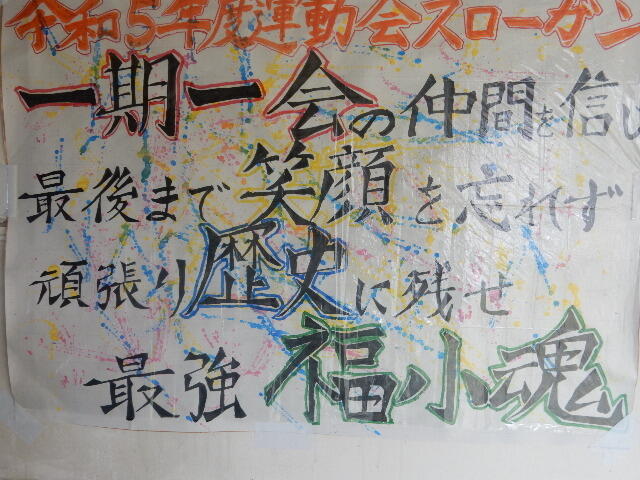 令和5年度運動会スローガン
一期一会の仲間を信じ
最後まで笑顔を忘れず
頑張り歴史に残せ
最強福小魂